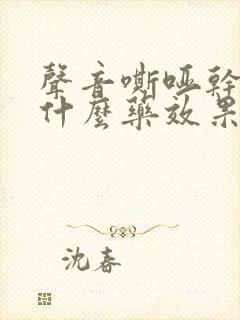 聲音嘶啞幹
什麼藥效果
沈春